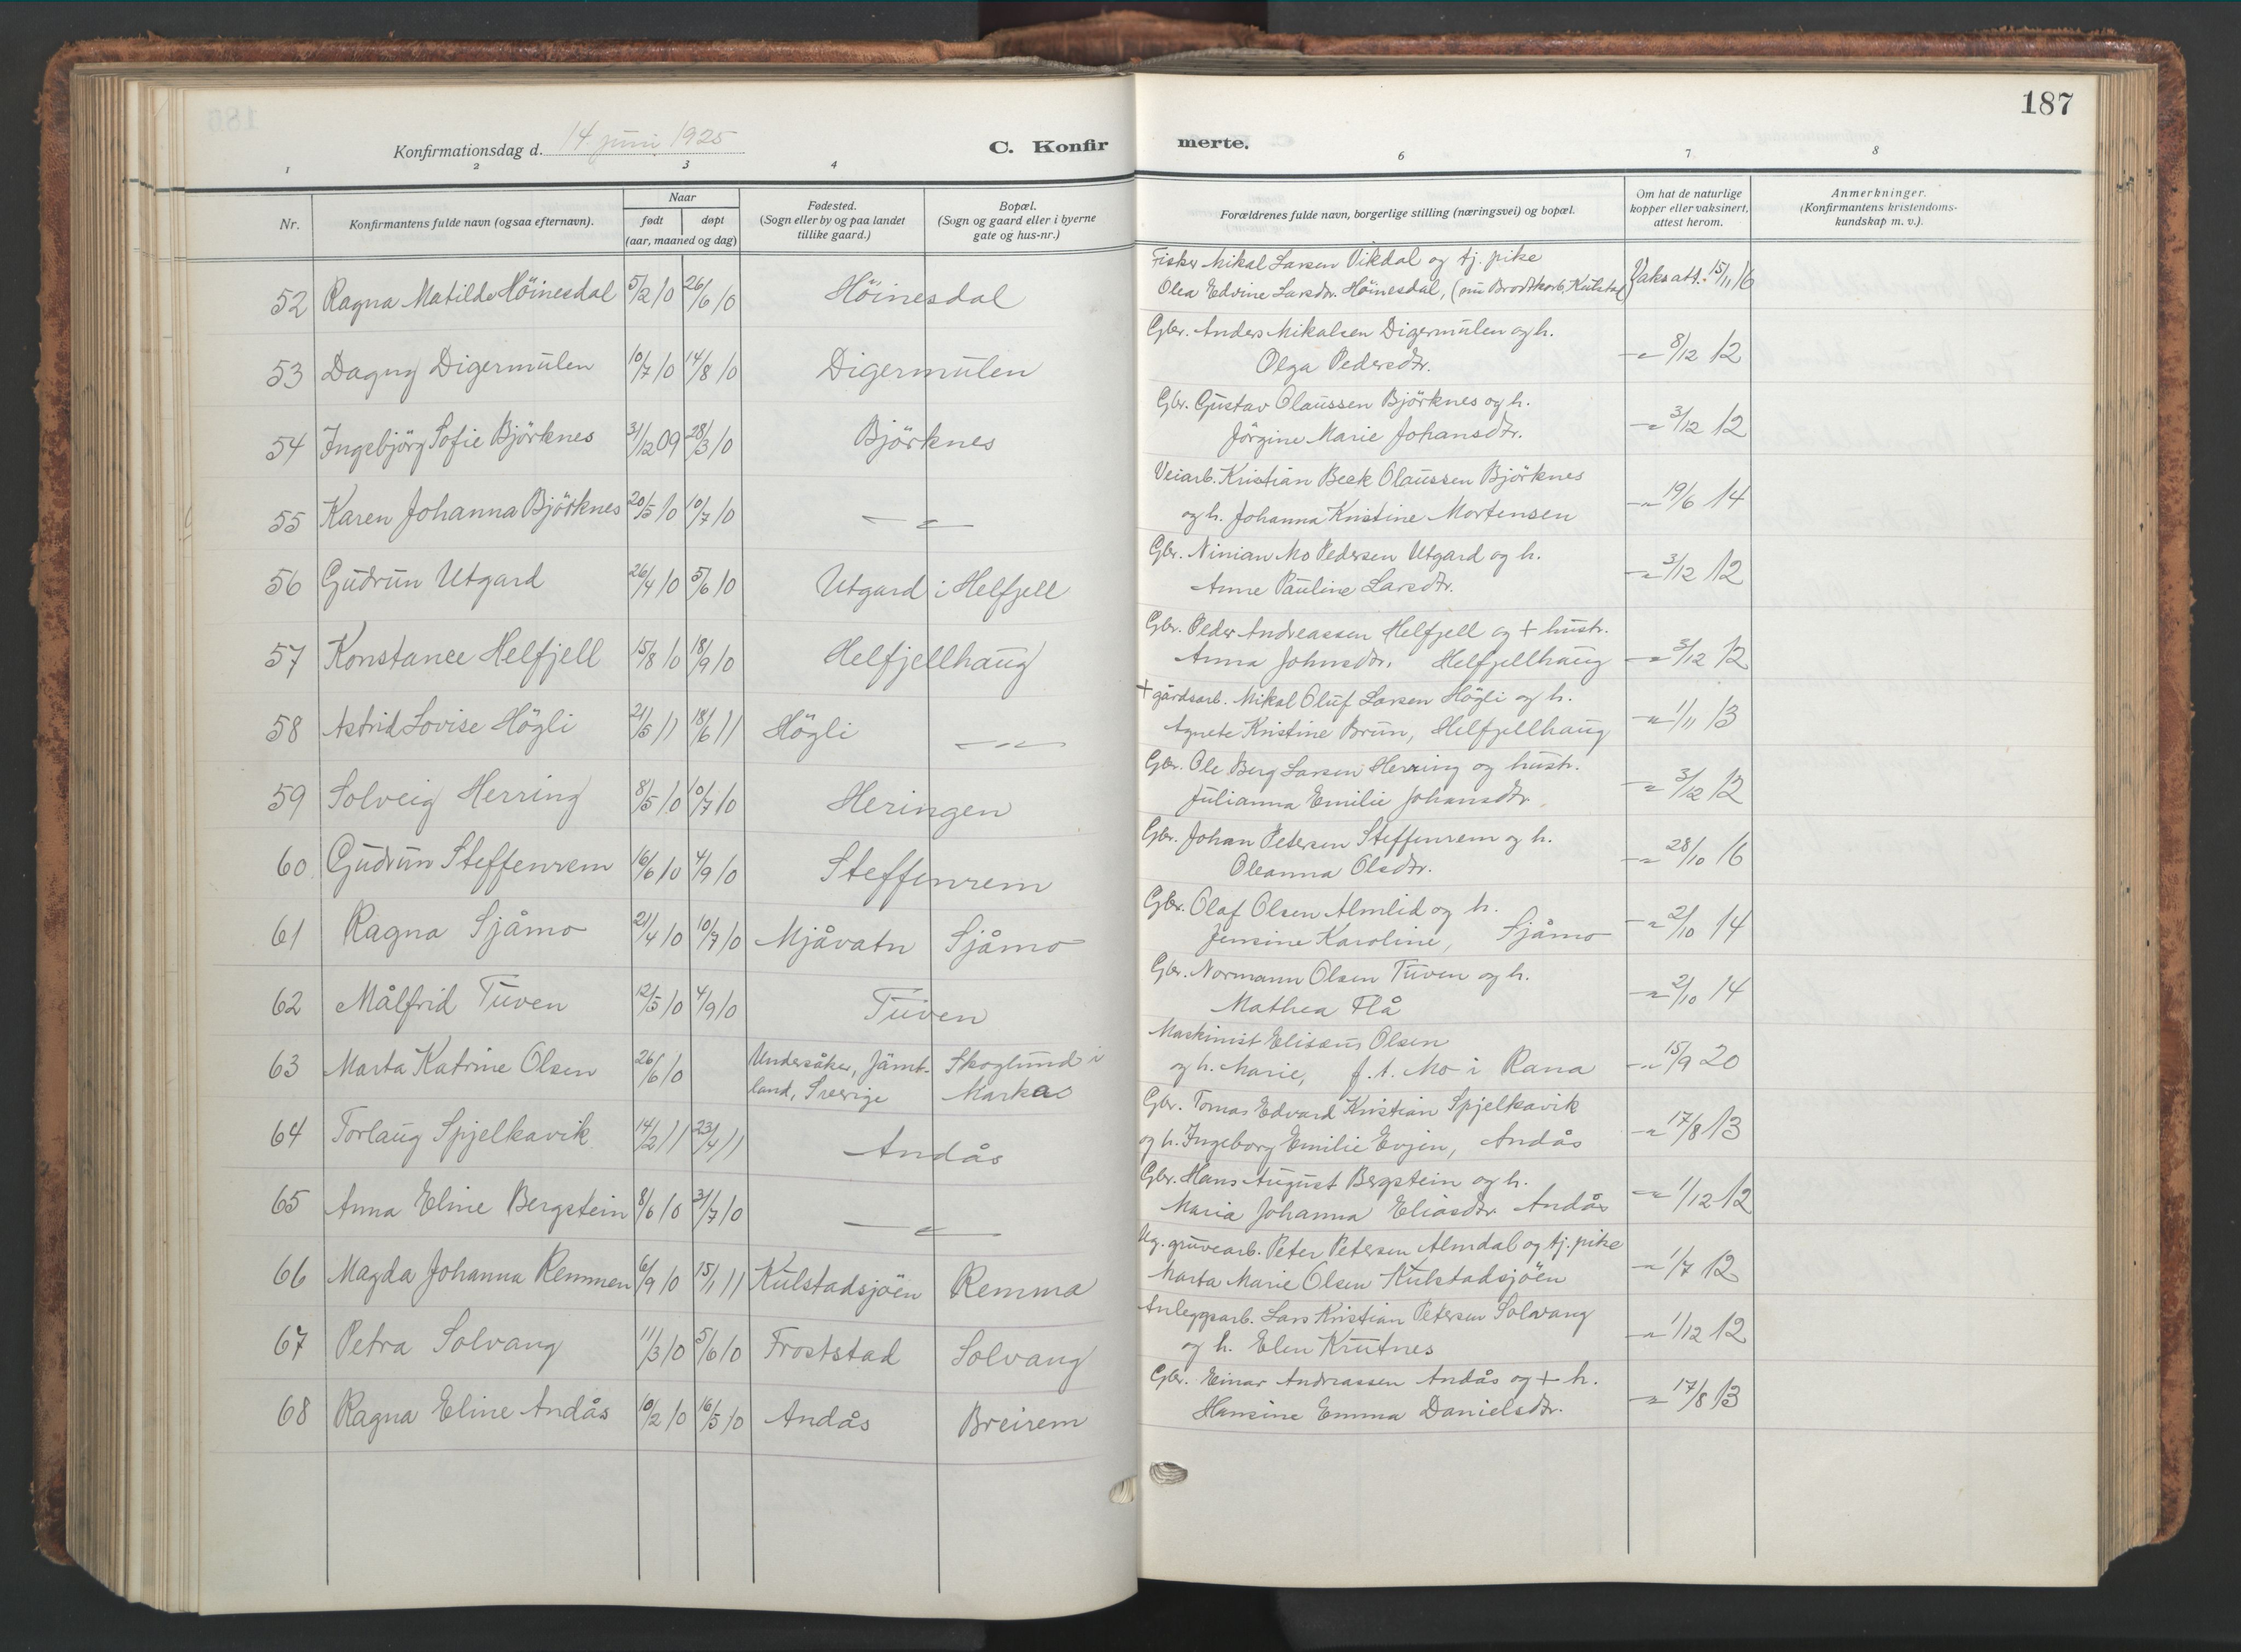 187
Konfirmationsdag d. 14. juni 1925
C. Konfirmerte.
1 2 3 4 6 7 8
Nr.
Konfirmantens fulde navn (ogsaa efternavn).
Naar
født døpt
(aar, maaned og dag)
Fødested.
(Sogn eller by og paa landet
tillike gaard.)
Bopæl.
(Sogn og gaard eller i byerne
gate og hus-nr.)
Forældrenes fulde navn, borgerlige stilling (næringsvei) og bopæl.
Om hat de naturlige
kopper eller vaksinert,
attest herom.
Anmerkninger.
(Konfirmantens kristendoms-
kundskap m. v.).
52 Ragna Matilde Höinesdal 5/2 10 26/6 10 Höinesdal
Fisker Mikal Larsen Vikdal og tj. pike
Olea Edvine Larsdtr. Höinesdal, (nu Brodtkorb, Kulstad) Vaksatt. 15/11 16
53 Dagny Digermulen 10/7 10 14/8 10 Digermulen
Gbr. Anders Mikalsen Digermulen og h.
Olga Pedersdtr. -"- 8/12 12
54 Ingebjörg Sofie Björknes 31/12 09 28/3 10 Björknes
Gbr. Gustav Olaussen Björknes og h.
Jörgine Marie Johansdtr. -"- 3/12 12
55 Karen Johanna Björknes 20/5 10 10/7 10 -"-
Veiarb. Kristian Beck Olaussen Björknes
og h. Johanna Kristine Mortensen -"- 19/6 14
56 Gudrun Utgard 26/4 10 5/6 10 Utgard i Helfjell
Gbr. Ninian Mo Pedersen Utgard og h.
Anne Pauline Larsdtr. -"- 3/12 12
57 Konstance Helfjell 15/8 10 18/9 10 Helfjellhaug
Gbr. Peder Andreassen Helfjell og + hustr.
Anna Johnsdtr. Helfjellhaug -"- 3/12 12
58 Astrid Lovise Högli 21/5 11 18/6 11 Högli -"-
+ gårdsarb. Mikal Oluf Larsen Högli og h.
Agnete Kristine Brun, Helfjellhaug -"- 1/11 13
59 Solveig Herring 8/5 10 10/7 10 Heringen
Gbr. Ole Berg Larsen Herring og hustr.
Julianna Emilie Johansdtr. -"- 3/12 12
60 Gudrun Steffenrem 16/6 10 4/9 10 Steffenrem
Gbr. Johan Petersen Steffenrem og h.
Oleanna Olsdtr. -"- 28/10 16
61 Ragna Sjåmo 21/4 10 10/7 10 Mjåvatn Sjåmo
Gbr. Olaf Olsen Almlid og h.
Jensine Karoline, Sjåmo -"- 2/10 14
62 Målfrid Tuven 12/5 10 4/9 10 Tuven
Gbr. Normann Olsen Tuven og h.
Mathea Flå -"- 2/10 14
63 Marta Katrine Olsen 26/6 10 Undersåker, Jämt-
land, Sverige Skoglund i
Markas
Maskinist Elisæus Olsen
og h. Marie, f. t. Mo i Rana -"- 15/9 20
64 Torlaug Spjelkavik 14/2 11 23/4 11 Andås
Gbr. Tomas Edvard Kristian Spjelkavik
og h. Ingeborg Emilie Evjen, Andås -"- 17/8 13
65 Anna Eline Bergstein 8/6 10 31/7 10 -"-
Gbr. Hans August Bergstein og h.
Maria Johanna Eliasdtr. Andås -"- 1/12 12
66 Magda Johanna Remmen 6/9 10 15/1 11 Kulstadsjöen Remma
Ug. gruvearb. Peter Petersen Almdal og tj. pike
Marta Marie Olsen Kulstadsjöen -"- 1/7 12
67 Petra Solvang 11/3 10 5/6 10 Froststad Solvang
Anleggsarb. Lars Kristian Petersen Solvang
og h. Elen Krutnes -"- 1/12 12
68 Ragna Eline Andås 10/2 10 16/5 10 Andås Breirem
Gbr. Einar Andreassen Andås og + h.
Hansine Emma Danielsdtr. -"- 17/8 13